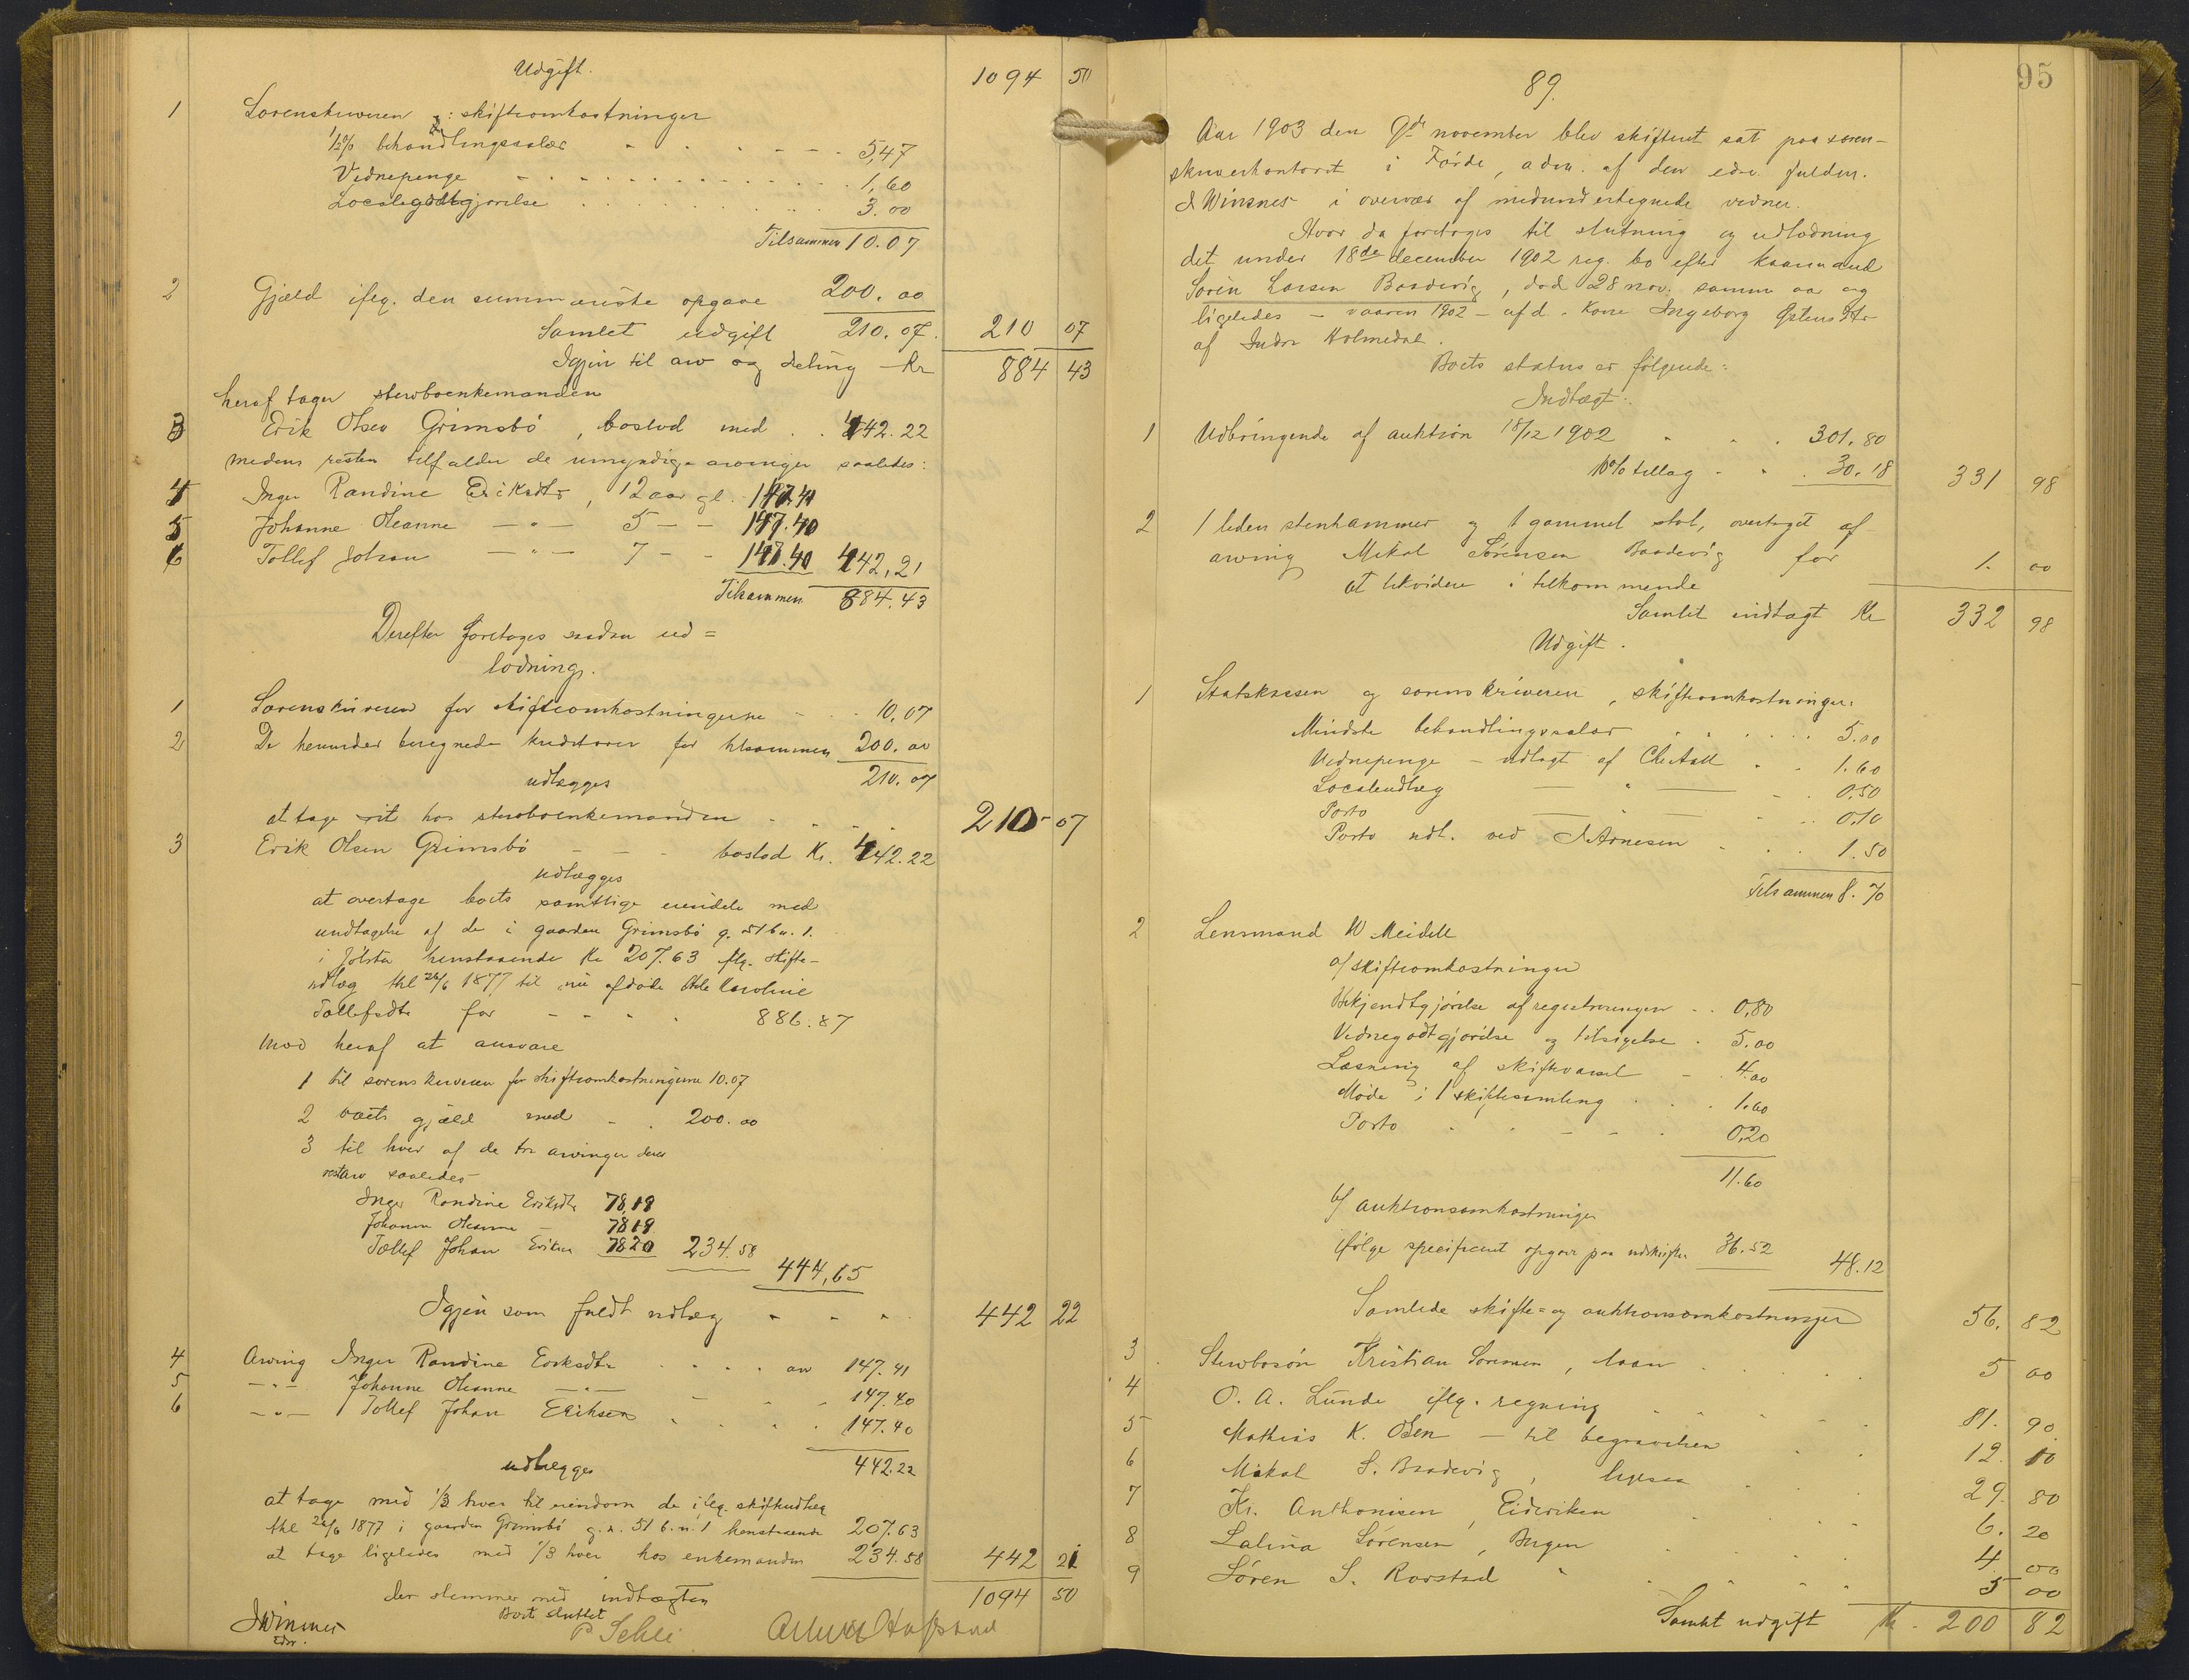 Udgift.
1094 50
1 Sorenskriveren : skifteomkostninger
1/2% behandlingssalær - - - 5,47
Vidnepenge - - - 1,60
Localegodtgjørelse - - - 3.00
Tilsammen 10.07
2 Gjæld iflg. den summariske opgave 200.00
Samlet udgift 210.07. 210 07
Igjen til arv og deling Kr 884 43
heraf tager stervboenkemanden
3 Erik Olsen Grimsbö, boslod med . . 442.22
medens resten tilfalder de umyndige arvinger saaledes:
4 Inger Randine Eriksdtr, 12 aar gl. 147.41
5 Johanne Oleanne —"— 5 - - 147.40
6 Tollef Johan —"— 7 - - 147.40 442,21
Tilsammen 884.43
Derefter foretages saadan ud=
lodning.
1 Sorenskriveren for skifteomkostningerne - - 10,07
2 De herunder beregnede kreditorer for tilsammen 200.00
udlægges 210.07
at tage sit hos stervboenkemanden - - - 210 - 07
3 Erik Olsen Grimsbö - - - boslod Kr. 442.22
udlægges
at overtage boets samtlige eiendele med
undtagelse af de i gaarden Grimsbö g. 51 b.n. 1.
i Jölster henstaaende Kr 207.63 iflg. skifte-
udlæg thl 26/6 1877 til nu afdöde Karoline
Tollefsdtr for - - - - 886.87
mod heraf at ansvare
1 til sorenskriveren for skifteomkostningerne 10.07
2 boets gjæld med - . 200.00
3 til hver af de tre arvinger deres
restarv saaledes
Inger Randine Eriksdtr 78,19
Johanne Oleanne — 78 19
Tollef Johan Eriksen 78 20 234.58
444,65
Igjen som fuldt udlæg - - - 442 22
4 Arving Inger Randine Eriksdtr . . . . arv 147.41
5 —"— Johanne Oleanne —"— - - - 147.40
6 —"— Tollef Johan Eriksen . . . 147.40
udlægges 442.22
at tage med 1/3 hver til eiendom de iflg. skifteudlæg
thl 26/6 1877 i gaarden Grimsbö g.n. 51 b.n. 1 henstaaende 207.63
at tage ligeledes med 1/3 hver hos enkemanden 234.58 442 21
der stemmer med indtægten 1094 50
Boet sluttet
JWinsnes
edsv.
P Sehli
95
89.
Aar 1903 den 9de november blev skifteret sat paa soren-
skriverkontoret i Förde, adm. af den edsv. fuldm.
J Winsnes i overvær af medundertegnede vidner.
Hvor da foretoges til slutning og udlodning
det under 18de december 1902 reg. bo efter kaarmand
Sörin Larsen Baadevig, död 28 nov. samme aar og
ligeledes - vaaren 1902 - afd. kone Ingeborg Östensdtr
af Indre Holmedal.
Boets status er fölgende:
Indtægt:
1 Udbringende af auktion 18/12 1902 . . . 301,80
10% tillæg - - . 30.18 331 98
2 1 liden stenhammer og 1 gammel stol, overtaget af
arving Mikal Sörensen Baadevig for 1. 00
at likvidere i tilkommende
Samlet indtægt Kr 332 98
Udgift.
1 Statskassen og sorenskriveren, skifteomkostninger:
Mindste behandlingssalær . . . . 5.00
Vidnepenge - udlagt af Chr Aall . . 1.60
Localeudlæg —"— - . 0.50
Porto —"— - . . 0.10
Porto udl. ved J Arnesen - . . 1.50
Tilsammen 8.70
2 Lensmand W Meidell
a/ skifteomkostninger
Bekjendtgjörelse af registreringen . . 0,80
Vidnegodtgjörelse og tilsigelse . 5.00
Læsning af skiftevarsel - . 4.00
Möde i 1 skiftesamling . . . 1.60
Porto . - - - . 0,20
11.60
b/ auktionsomkostninger
ifölge specificeret opgave paa udskriften 36.52 48.12
Samlede skifte= og auktionsomkostninger 56. 82
3 Stervbosön Kristian Sörensen, laan . . . . . 5 00
4 O. A. Lunde iflg. regning . . . . 81. 90
5 Mathias K. Olsen - til begravelsen . . 12. 10
6 Mikal S. Baadevig, ligesaa . . 29. 80
7 Kr. Anthonisen, Eideviken . . . 6. 20
8 Salina Sörensen, Bergen . . . 4. 00
9 Sören S. Rorstad . . . . 5 00
Samlet udgift Kr. 200 82